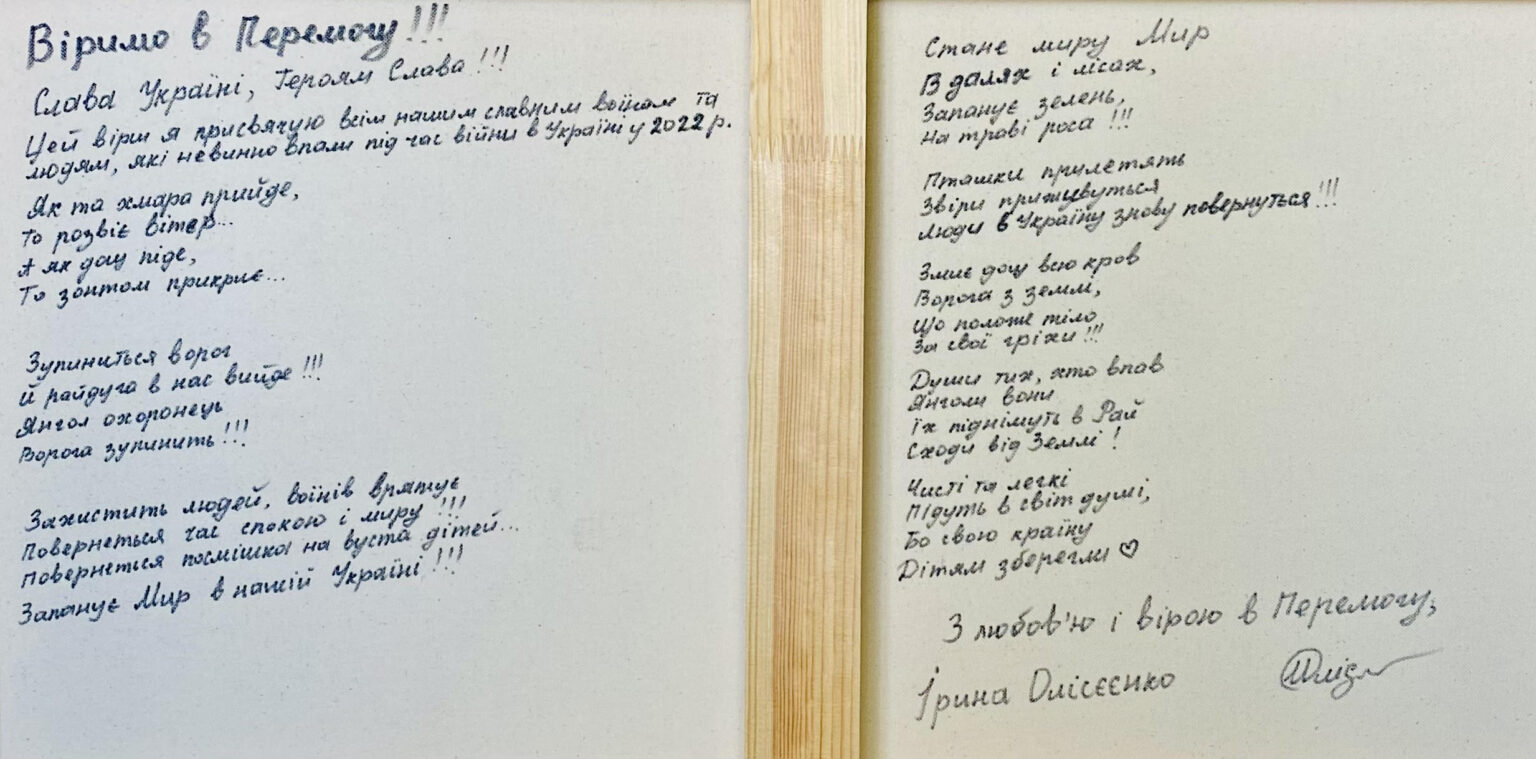 Віримо в Перемогу!!!
Слава Україні, Героям Слава!!!
Цей вірш я присвячую всім нашим славним воїнам та
людям, які невинно впали під час війни в Україні у 2022 р.
Як та хмара прийде,
То розвіє вітер...
А як дощ піде,
То зонтом прикриє...
Зупиниться ворог
Й райдуга в нас вийде!!!
Янгол охоронець
Ворога зупинить!!!
Захистить людей, воїнів врятує
Повернеться час спокою і миру!!!
Повернеться посмішка на вуста дітей...
Запанує Мир в нашій Україні!!!
Стане миру Мир
В далях і лісах,
Запанує зелень,
На траві роса!!!
Пташки прилетять
Звіри приживуться
Люди в Україну знову повернуться!!!
Змиє дощ всю кров
Ворога з землі,
Що положе тіло
За свої гріхи!!!
Души тих, хто впав
Янголи вони
Їх піднімуть в Рай
Сходи від Землі!
Чисті та легкі
Підуть в світ душі,
Бо свою країну
Дітям зберегли ♡
З любов'ю і вірою в Перемогу,
Ірина Олісєєнко